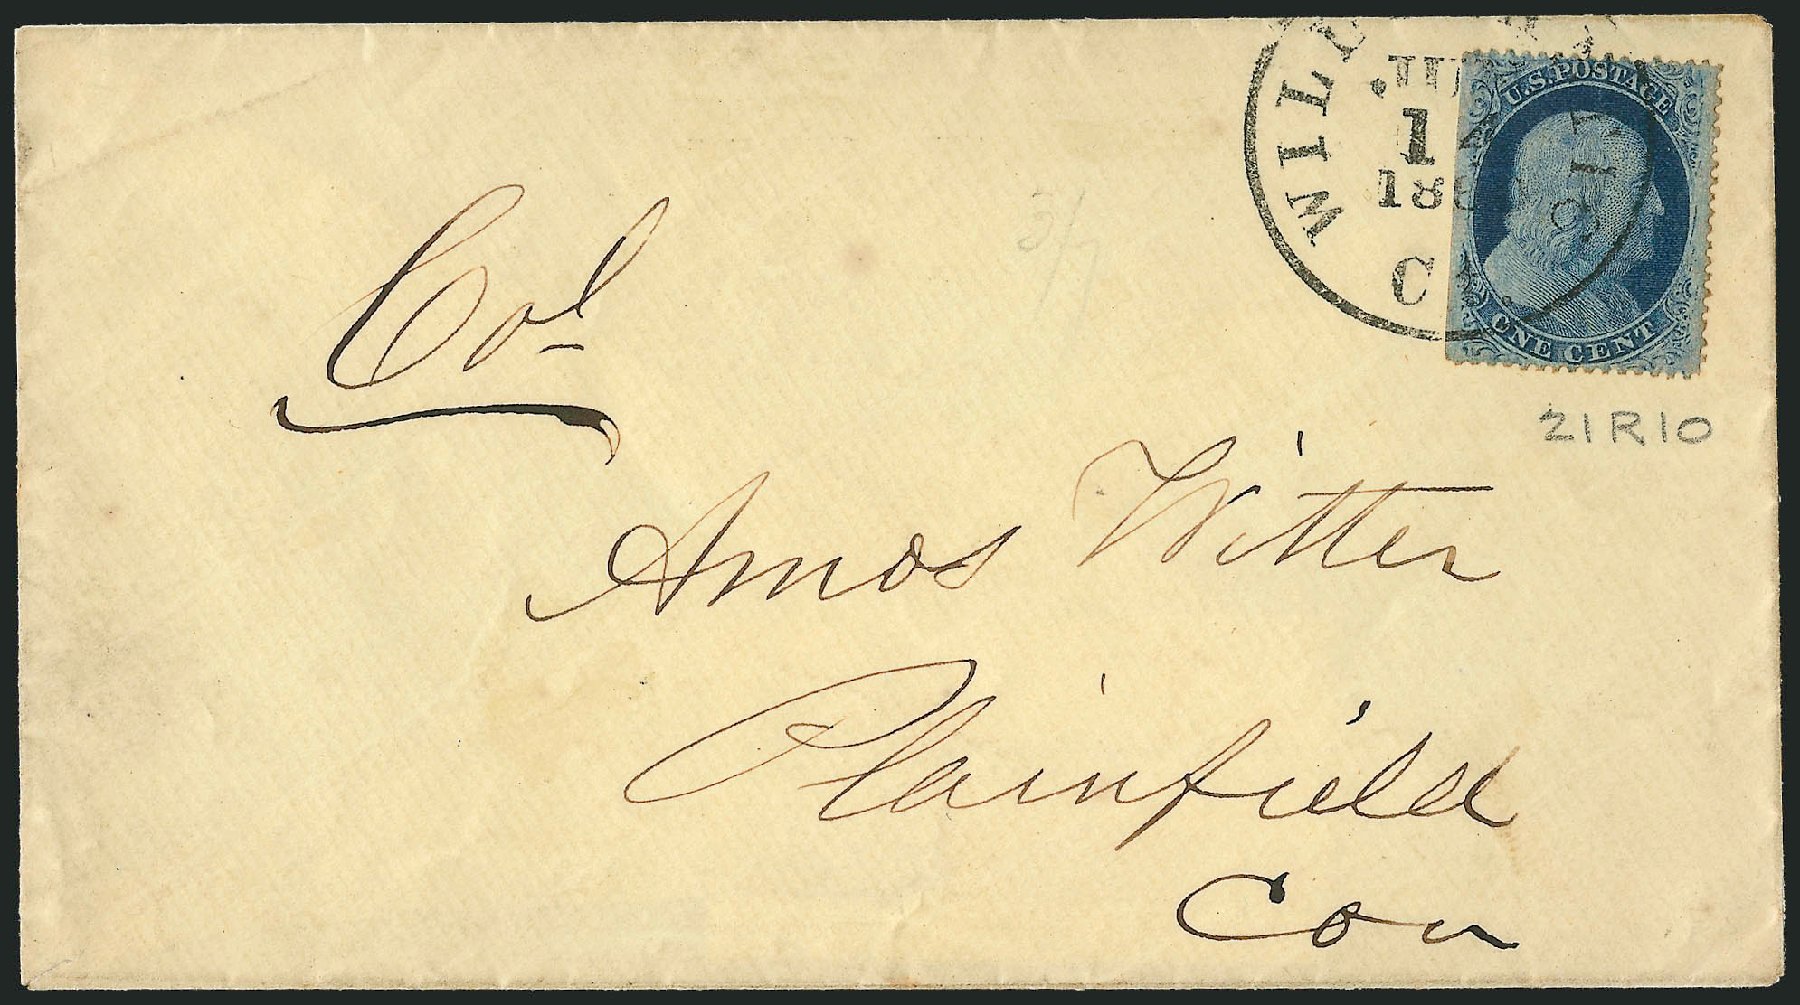 WILL
U.S. POSTAGE
1
186
C
ONE CENT
21R10
3/7
Col
Amos Witter
Plainfield
Con